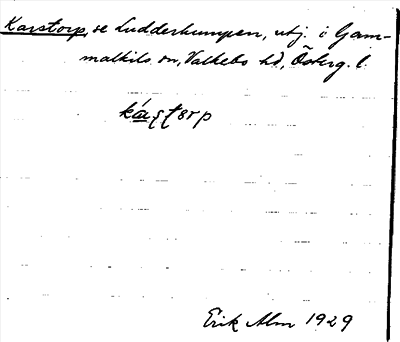 Karstorp, se Ludderkumpen, utj. i Gam-
malkils sn, Valkebo hd, Österg. l.
kás̨t̨orp
Erik Alm 1929